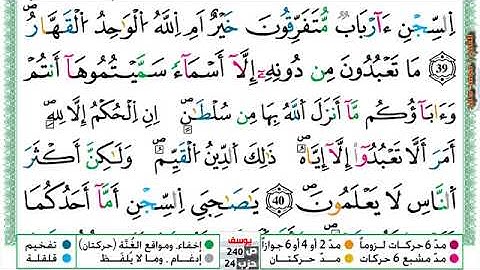 ٱلسِّجۡنِ ءَأَرۡبَابٞ مُّتَفَرِّقُونَ خَيۡرٌ أَمِ ٱللَّهُ ٱلۡوَٰحِدُ ٱلۡقَهَّارُ
٣٩ مَا تَعۡبُدُونَ مِن دُونِهِۦٓ إِلَّآ أَسۡمَآءٗ سَمَّيۡتُمُوهَآ أَنتُمۡ
وَءَابَآؤُكُم مَّآ أَنزَلَ ٱللَّهُ بِهَا مِن سُلۡطَٰنٍۚ إِنِ ٱلۡحُكۡمُ إِلَّا لِلَّهِ
أَمَرَ أَلَّا تَعۡبُدُوٓاْ إِلَّآ إِيَّاهُۚ ذَٰلِكَ ٱلدِّينُ ٱلۡقَيِّمُ وَلَٰكِنَّ أَكۡثَرَ
ٱلنَّاسِ لَا يَعۡلَمُونَ ٤٠ يَٰصَٰحِبَيِ ٱلسِّجۡنِ أَمَّآ أَحَدُكُمَا
مدّ 6 حركات لزوماً مدّ 2 أو 4 أو 6 جوازاً إخفاء، ومواقع الغُنَّة (حركتان) تفخيم
مدّ مشبع 6 حركات مدّ حركتان إدغام، وما لا يُلفَظ قلقلة
يوسف
240
حزب 24